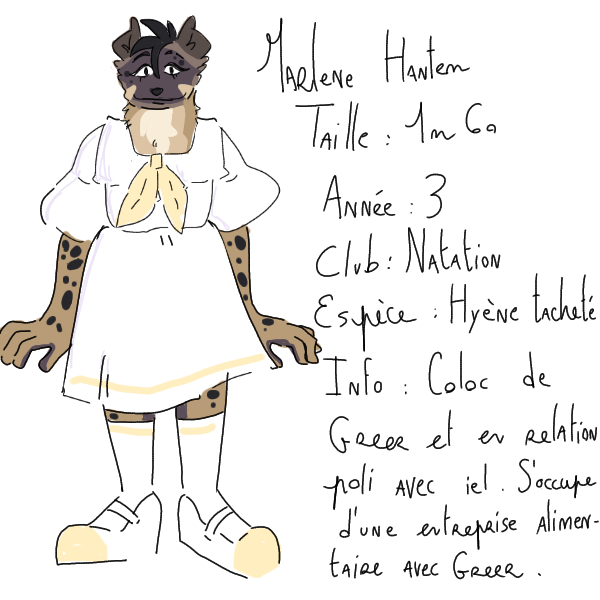 Marlene Hantem
Taille : 1m60
Année : 3
Club : Natation
Espèce : Hyène tacheté
Info : Coloc de
Greer et en relation
poli avec iel. S'occupe
d'une entreprise alimen-
taire avec Greer.